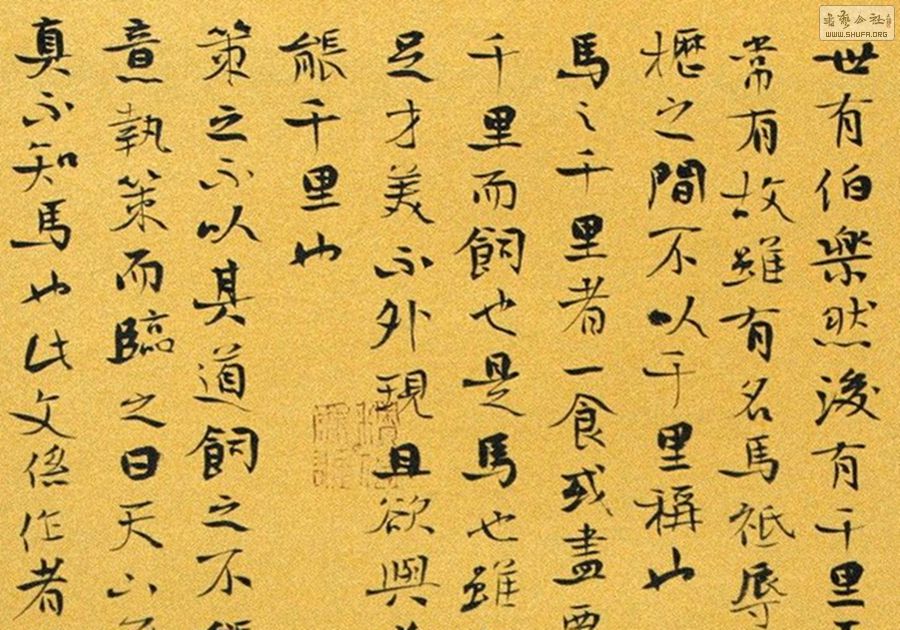 世有伯樂然後有千里
常有故雖有名馬祗辱
櫪之間不以千里稱也
馬之千里者一食或盡
千里而飼也是馬也雖
足才美不外現且欲與
能千里也
策之不以其道飼之不
意執策而臨之曰天下
真不知馬也此文係作者
WWW.SHUFA.ORG